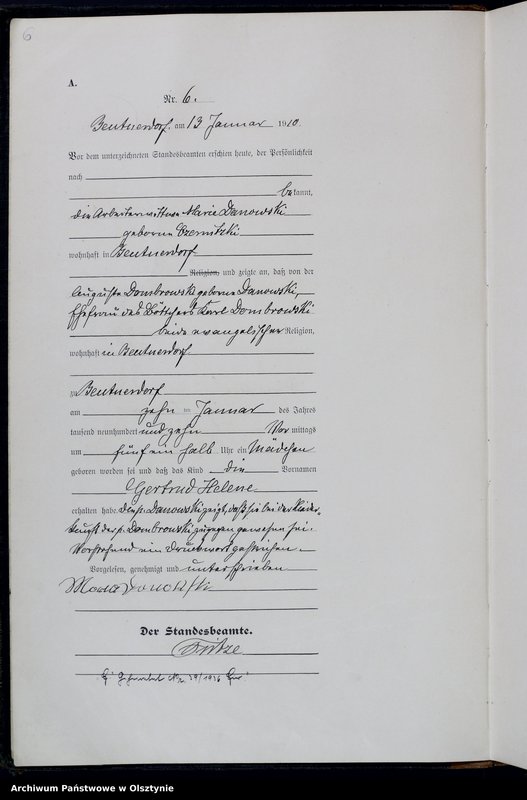 6
A.
Nr. 6.
Beutnerdorf, am 13 Januar 1910.
Vor dem unterzeichneten Standesbeamten erschien heute, der Persönlichkeit
nach
bekannt,
die Arbeiterwittwe Marie Danowski
geborene Czernitzki
wohnhaft in Beutnerdorf
Religion, und zeigte an, daß von der
Auguste Dombrowski geborne Danowski,
Ehefrau des Böttchers Karl Dombrowski
beide evangelischer Religion,
wohnhaft in Beutnerdorf
in Beutnerdorf
am zehn ten Januar des Jahres
tausend neunhundert und zehn Vor mittags
um fünf ein halb Uhr ein Mädchen
geboren worden sei und daß das Kind die Vornamen
Gertrud Helene
erhalten habe. Die p. Danowski zeigt, daß sie bei der Nieder-
kunft der p. Dombrowski zugegen gewesen sei.
Vorstehend ein Druckwort gestrichen.
Vorgelesen, genehmigt und unterschrieben
Maria Donofski
Der Standesbeamte.
Fritze
Nr. 39/1936
Archiwum Państwowe w Olsztynie